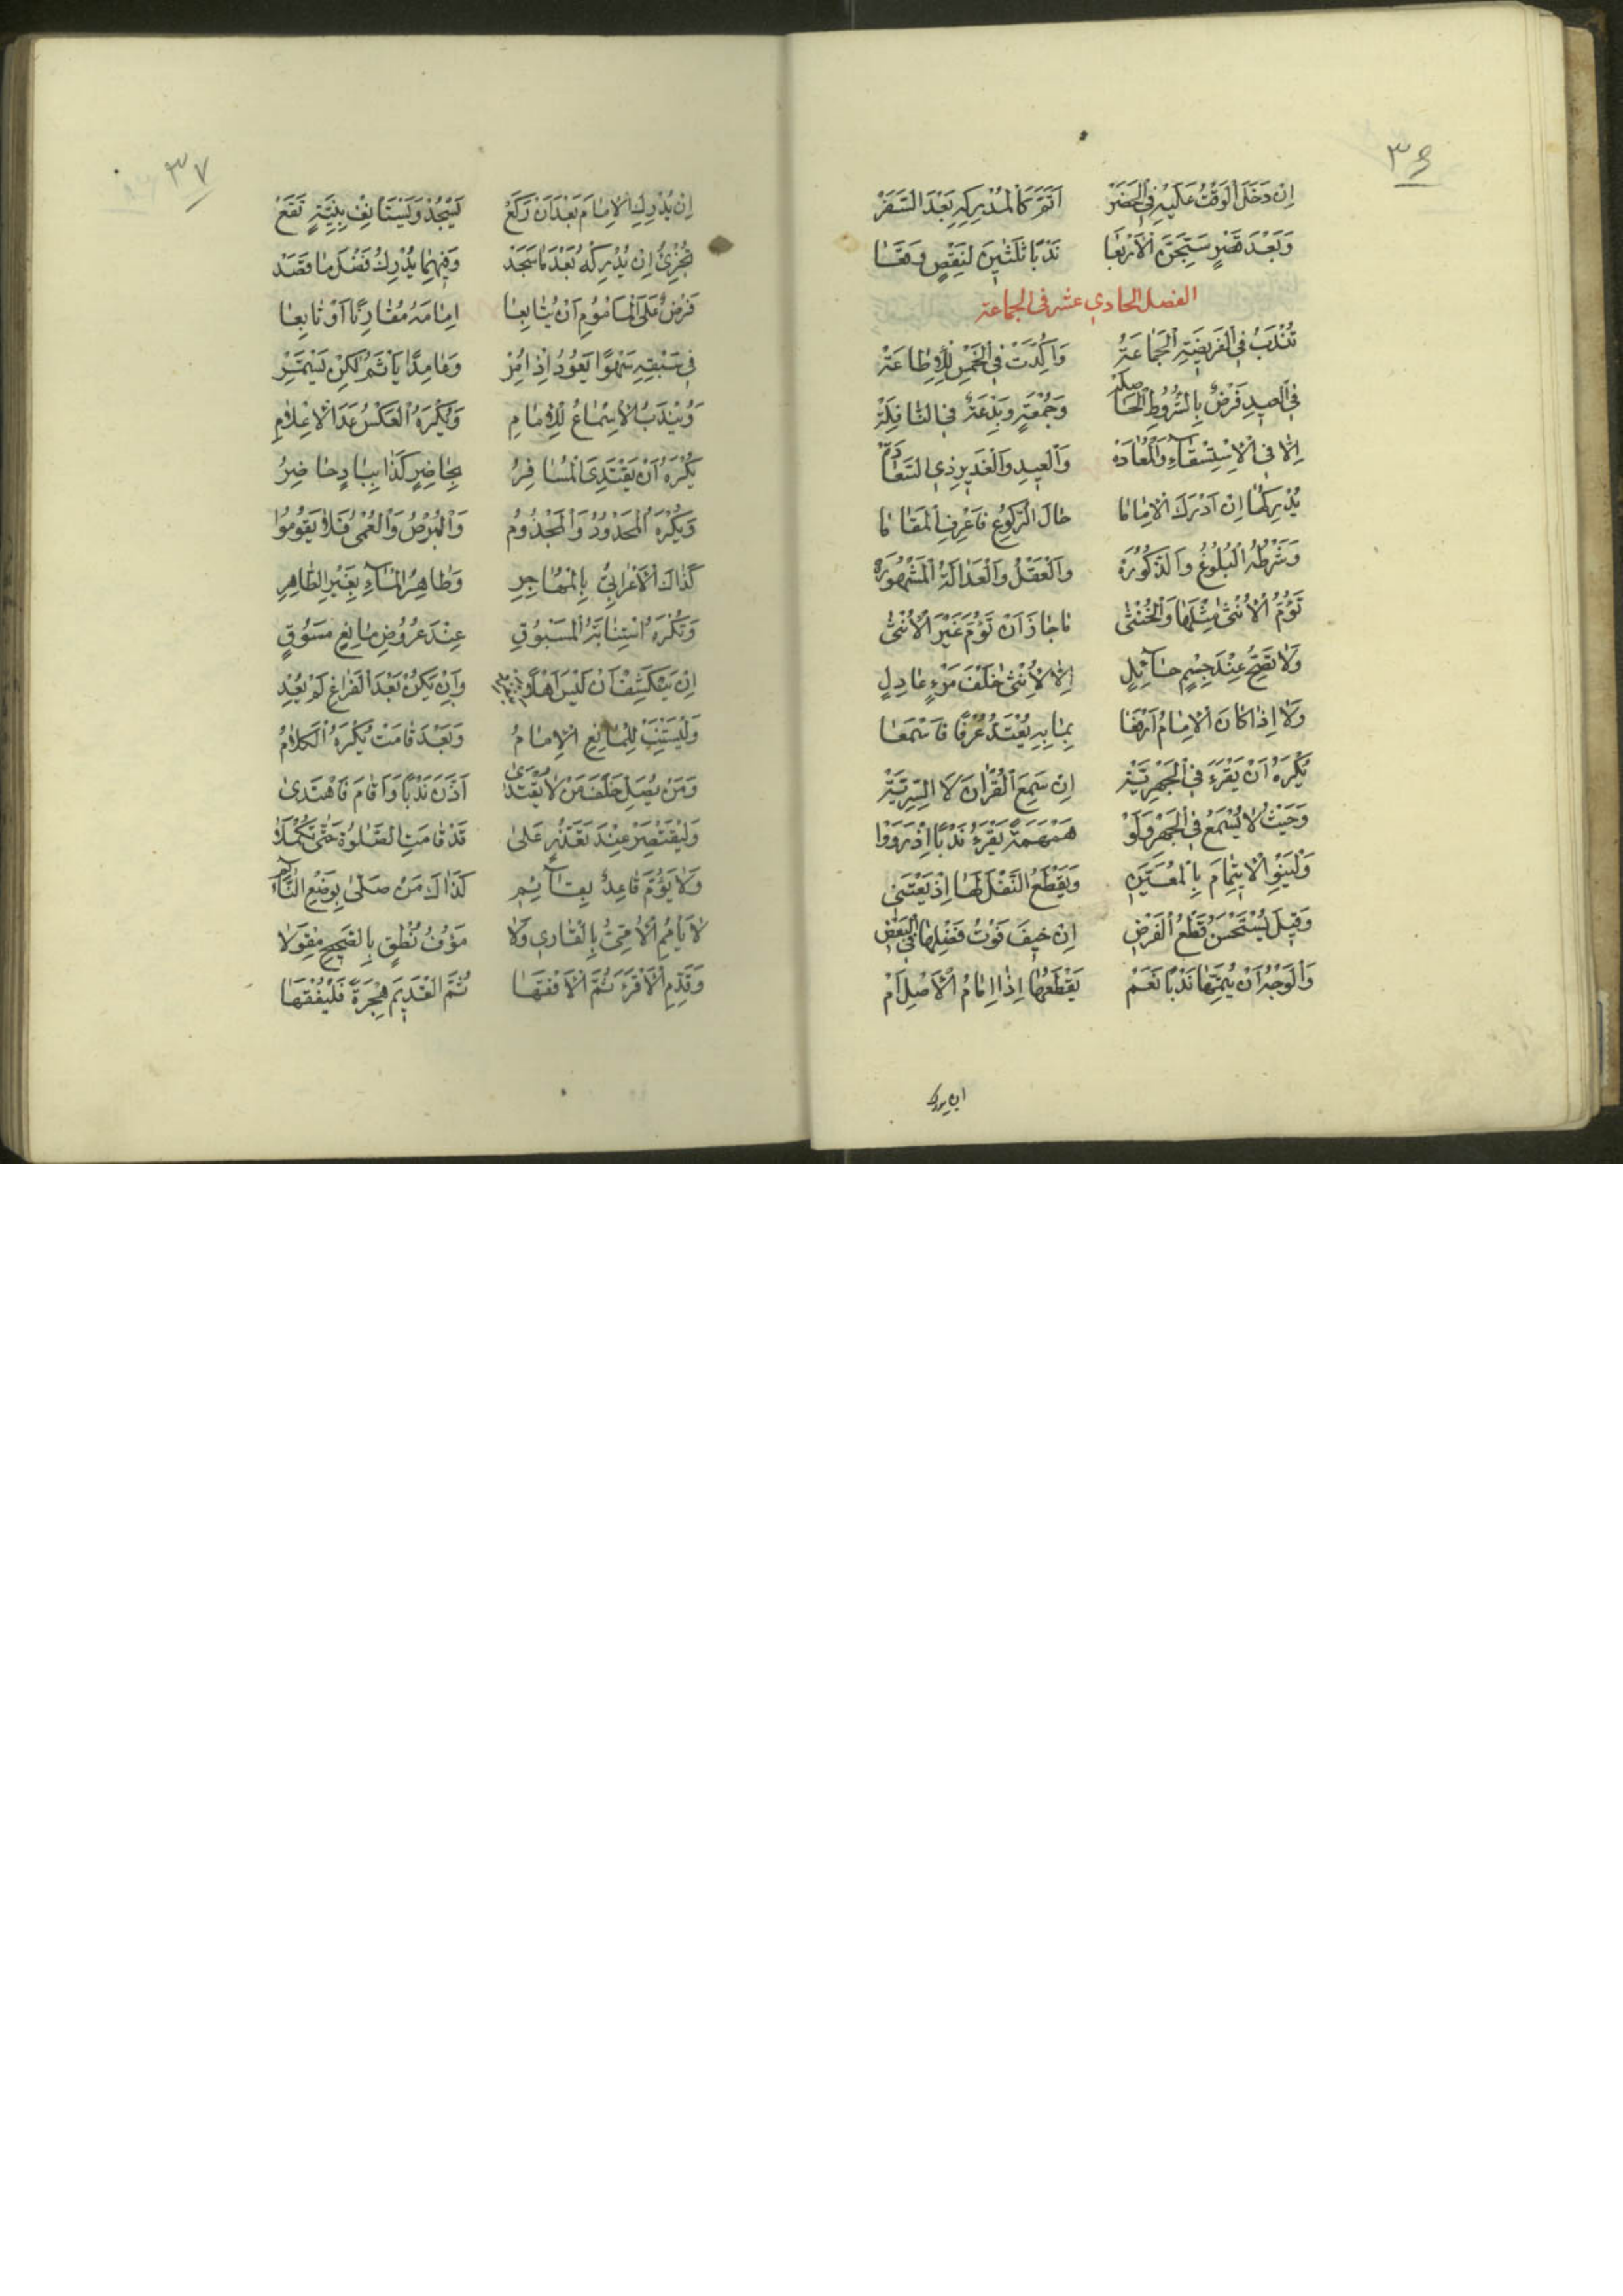 ٣٦
اِنْ دَخَلَ الْوَقْتُ عَلَيْهِ فِي الْحَضَرْ اَتَمَّ كَالْمُدْرِكِهِ بَعْدَ السَّفَرْ
وَبَعْدَ قَصْرٍ سَبِّحَنَّ الْاَرْبَعَا نَدْبًا ثَلٰثِينَ لِنَقْصٍ وَقَعَا
الفصل الحادي عشر في الجماعة
تُنْدَبُ فِي الْفَرِيضَةِ الْجَمَاعَةْ وَاُكِّدَتْ فِي الْخَمْسِ لِلْاِطَاعَةْ
فِي الْعِيدِ فَرْضٌ بِالشُّرُوطِ الْحَاصِلَةْ وَجُمْعَةٍ وَبِدْعَةٌ فِي النَّافِلَةْ
اِلَّا فِي الْاِسْتِسْقَاءِ وَالْمُعَادَهْ وَالْعِيدِ وَالْغَدِيرِ ذِي السَّعَادَهْ
يُدْرِكُهَا اِنْ اَدْرَكَ الْاِمَامَا حَالَ الرُّكُوعِ فَاعْرِفِ الْمَقَامَا
وَشَرْطُهُ الْبُلُوغُ وَالذُّكُورَهْ وَالْعَقْلُ وَالْعَدَالَةُ الْمَشْهُورَهْ
تَؤُمُّ الْاُنْثٰى مِثْلَهَا وَالْخُنْثٰى مَا جَازَ اَنْ تَؤُمَّ غَيْرَ الْاُنْثٰى
وَلَا تَصِحُّ عِنْدَ جِسْمٍ حَآئِلٍ اِلَّا لِاُنْثٰى خَلْفَ مَرْءٍ عَادِلٍ
وَلَا اِذَا كَانَ الْاِمَامُ اَرْفَعَا بِمَا بِهِ يُعْتَدُّ عُرْفًا فَاسْمَعَا
يُكْرَهُ اَنْ يَقْرَءَ فِي الْجَهْرِيَّةْ اِنْ سَمِعَ الْقُرْاٰنَ لَا السِّرِّيَّةْ
وَحَيْثُ لَا يُسْمَعُ فِي الْجَهْرِ وَلَوْ هَمْهَمَةً يَقْرَءُ نَدْبًا اِذْ رَوَوْا
وَلْيَنْوِ الْايتِمَامَ بِالْمُعَيَّنِ وَيَقْطَعُ النَّفْلَ لَهَا اِذْ يَعْتَنِي
وَقِيلَ يُسْتَحْسَنُ قَطْعُ الْفَرْضِ اِنْ خِيفَ فَوْتُ فَضْلِهَا فِي الْبَعْضِ
وَالْوَجْهُ اَنْ يُتِمَّهَا نَدْبًا نَعَمْ يَقْطَعُهَا اِذَا اِمَامُ الْاَصْلِ اَمْ
ان يدرك
٣٧
اِنْ يُدْرِكِ الْاِمَامَ بَعْدَ اَنْ رَكَعْ يَسْجُدْ وَيَسْتَانِفْ بِنِيَّةٍ تَقَعْ
تُجْزِئُ اِنْ يُدْرِكْهُ بَعْدَ مَا سَجَدْ وَفِيهِمَا يُدْرِكُ فَضْلَ مَا قَصَدْ
فَرْضٌ عَلَى الْمَامُومِ اَنْ يُتَابِعَا اِمَامَهُ مُقَارِنًا اَوْ تَابِعَا
فِي سَبْقِهِ سَهْوًا يَعُودُ اِذْ اُمِرْ وَعَامِدًا يَاثَمُ لٰكِنْ يَسْتَمِرْ
وَيُنْدَبُ الْاِسْمَاعُ لِلْاِمَامِ وَيُكْرَهُ الْعَكْسُ عَدَا الْاِعْلَامِ
يُكْرَهُ اَنْ يَقْتَدِيَ الْمُسَافِرُ بِحَاضِرٍ كَذَا بِبَادٍ حَاضِرُ
وَيُكْرَهُ الْمَحْدُودُ وَالْمَجْذُومُ وَالْبُرْصُ وَالْعُمْىُ فَلَا يَقُومُوا
كَذٰاكَ الْاَعْرَابِيُّ بِالْمُهَاجِرِ وَطَاهِرُ الْمَآءِ بِغَيْرِ الطَّاهِرِ
وَتُكْرَهُ اسْتِنَابَةُ الْمَسْبُوقِ عِنْدَ عُرُوضِ مَانِعٍ مَسُوقٍ
اِنْ يَنْكَشِفْ اَنْ لَيْسَ اَهْلًا وَاِنْ يَكُنْ بَعْدَ الْفَرَاغِ لَمْ يُعِدِ
وَلْيَسْتَنِبْ لِلْمَانِعِ الْاِمَامُ وَبَعْدَ قَامَتْ يُكْرَهُ الْكَلَامُ
وَمَنْ يُصَلِّ خَلْفَ مَنْ لَا يُقْتَدٰى اَذَّنَ نَدْبًا وَاَقَامَ فَاهْتَدٰى
وَلْيَقْتَصِرْ عِنْدَ تَعَذُّرٍ عَلٰى قَدْ قَامَتِ الصَّلٰوةُ حَتّٰى تَكْمُلَا
وَلَا يَؤُمَّ قَاعِدٌ بِقَآئِمِ كَذَاكَ مَنْ صَلّٰى بِوَضْعِ النَّآئِمِ
لَا يَامُمِ الْاُمِّىُّ بِالْقَارِي وَلَا مَؤُفُ نُطْقٍ بِالصَّحِيحِ مِقْوَلَا
وَقَدِّمِ الْاَقْرَءَ ثُمَّ الْاَفْقَهَا ثُمَّ الْقَدِيمَ هِجْرَةً فَلْيُفْقَهَا